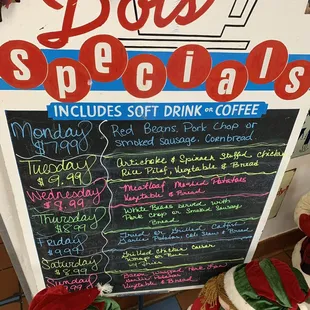 Dots
Specials
INCLUDES SOFT DRINK OR COFFEE
Monday Red Beans, Pork Chop or
$7.99 smoked sausage, Cornbread
Tuesday Artichoke & Spinach Stuffed Chicken
$9.99 Rice Pilaf, Vegetable & Bread
Wednesday Meatloaf Mashed Potatoes
$8.99 Vegetable & Bread
Thursday White Beans served with
$8.99 Pork Chop or Smoked Sausage
Friday Fried or Grilled Catfish
$9.99 Garlic Potatoes Cole Slaw & Bread
Saturday Grilled Chicken Caesar
$8.99 Wrap or
w/ Fries
Sunday Bacon Wrapped Pork
Garlic Potatoes
Vegetable & Bread